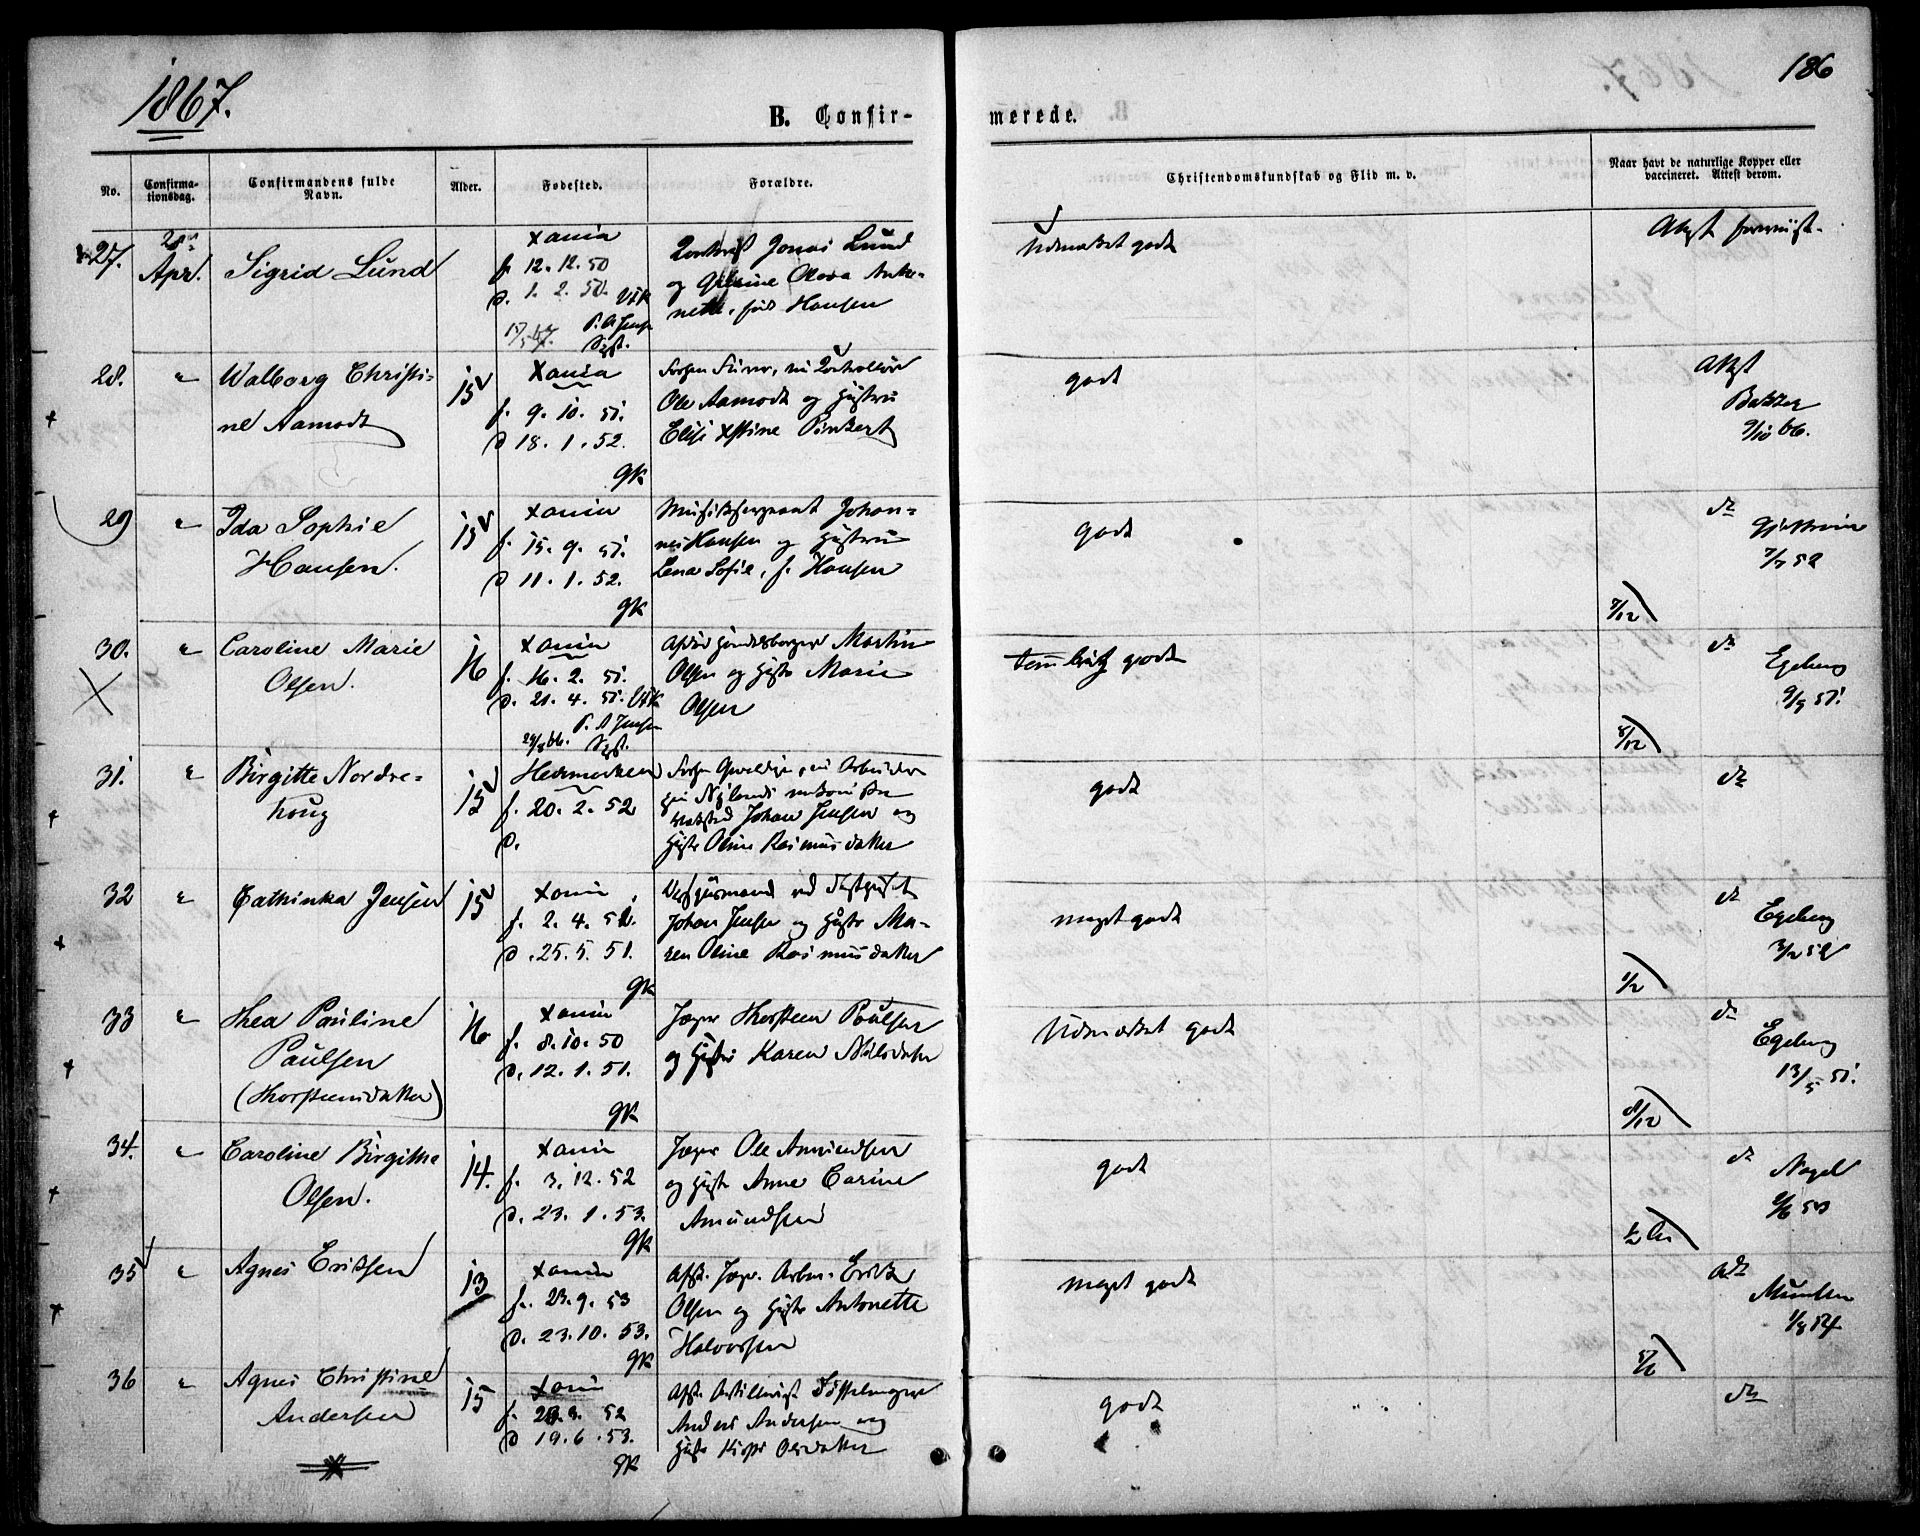 1867.
186
B. Confir-
merede.
No.
Confirma-
tionsdag.
Confirmandens fulde
Navn.
Alder.
Fødested.
Forældre.
Christendomskundskab og Flid m. v.
Naar havt de naturlige Kopper eller
vaccineret. Attest derom.
27.
Apr.
Sigrid Lund
Xania
f. 12. 12. 50
d. 1. 2. 50.
Jonas Lund
og Olava Anto-
nette, fød Hansen
Udmærket godt
28.
"
Walborg Christi-
ne Aamodt
15
Xania
f. 9. 10. 51.
d 18. 1. 52.
gk
Ole Aamodt og Hustru
Elise Xstine Pinkert
godt
Attst
9/10 66.
29
"
Ida Sophie
Hansen.
15
Xania
f. 15. 9. 51.
d 11. 1. 52.
gk
Musiksergeant Johan-
nes Hansen og Hustru
Lena Sofie, f. Hansen
godt
do
7/7 52
7/12
30.
"
Caroline Marie
Olsen.
16
Xania
f. 16. 2. 51.
d. 21. 4. 51.
Martin
Olsen og Hustr Marie
Olsen
temlig godt
do
Egeberg
9/9 51.
8/12
31.
"
Birgitte Nordre-
houg
15
Hedemarken
f. 20. 2. 52
d.
Johan Jensen og
Hustr Oline Rasmusdatter
godt
do
32
"
Cathinka Jensen
15
Xania
f. 2. 4. 51.
d. 25. 5. 51.
gk
Johan Jensen og Hustr Ma-
ren Oline Rasmusdatter
meget godt
do
Egeberg
3/2 52
1/2
33
"
Thea Pauline
Paulsen
(Thorsteensdatter)
16
Xania
f. 8. 10. 50
d. 12. 1. 51.
gk
Jæger Thorsteen Paulsen
og Hustru Karen Nilsdatter
Udmærket godt
do
Egeberg
13/5 51.
8/12
34.
"
Caroline Birgitte
Olsen.
14.
Xania
f. 3. 12. 52
d. 23. 1. 53.
gk
Jæger Ole Amundsen
og Hustr Anne Carine
Amundsen
godt
do
Nagel
6/6 53
35
"
Agnes Eriksen
13
Xania
f. 23. 9. 53
d. 23. 10. 53.
gk
Afsk. Jæger. Arbm. Erik
Olsen og Hustr Antonette
Halvorsen
meget godt
do
1/8 54
36
"
Agnes Christine
Andersen
15
Xania
d 19. 6. 53.
gk
Anders Andersen og
Olsdatter
godt
do